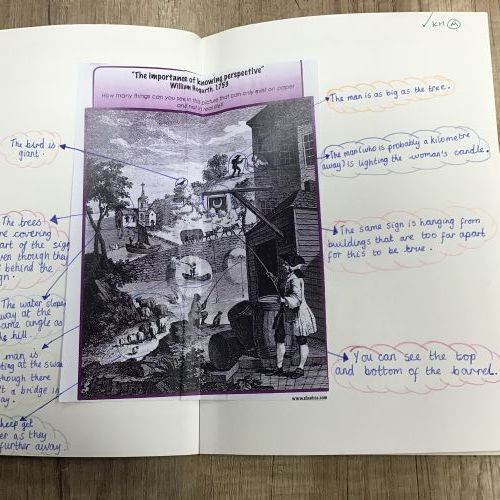 ✓KM
"The importance of knowing perspective"
William Hogarth, 1753
How many things can you see in this picture that can only exist on paper
and not in real life?
The bird is
giant.
The trees
re covering
art of the sign
even though they
behind the
gn.
The water slopes
way at the
ame angle as
hill.
man is
ting at the swan
though there
t a bridge in
ay.
heep get
er as they
further away.
The man is as big as the tree.
The man (who is probably a kilometre
away) is lighting the woman's candle.
The same sign is hanging from
buildings that are too far apart
for this to be true.
You can see the top
and bottom of the barrel.